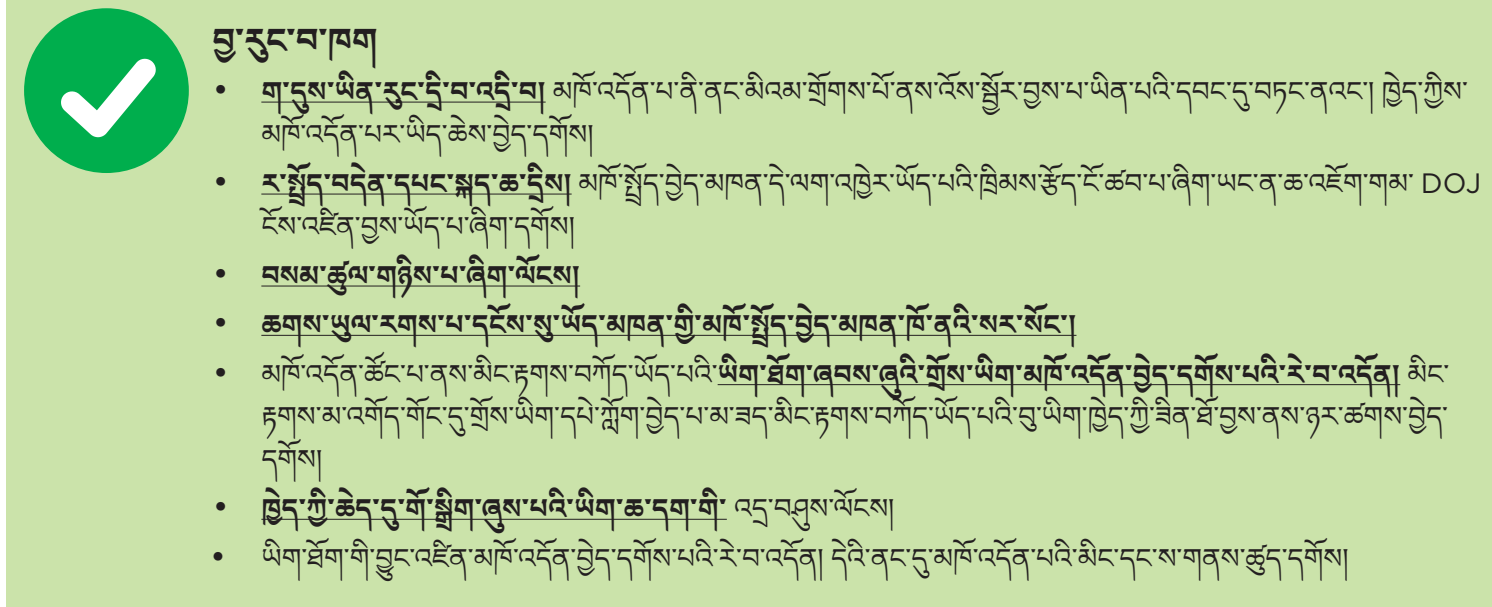 བྱ་རུང་བ་ཁག
• ག་དུས་ཡིན་རུང་དྲི་བ་འདྲི་བ། མཁོ་འདོན་པ་ནི་ནང་མིའམ་གྲོགས་པོ་ནས་འོས་སྦྱོར་བྱས་པ་ཡིན་པའི་དབང་དུ་བཏང་ནའང་། ཁྱེད་ཀྱིས་
མཁོ་འདོན་པར་ཡིད་ཆེས་བྱེད་དགོས།
• ར་སྤྲོད་བདེན་དཔང་སྐད་ཆ་དྲིས། མཁོ་སྤྲོད་བྱེད་མཁན་དེ་ལག་འཁྱེར་ཡོད་པའི་ཁྲིམས་རྩོད་ངོ་ཚབ་པ་ཞིག་ཡང་ན་ཆ་འཇོག་གམ་ DOJ
ངོས་འཛིན་བྱས་ཡོད་པ་ཞིག་དགོས།
• བསམ་ཚུལ་གཉིས་པ་ཞིག་ལོངས།
• ཆགས་ཡུལ་རགས་པ་དངོས་སུ་ཡོད་མཁན་གྱི་མཁོ་སྤྲོད་བྱེད་མཁན་ཁོ་ནའི་སར་སོང་།
• མཁོ་འདོན་ཚོང་པ་ནས་མིང་རྟགས་བཀོད་ཡོད་པའི་ཡིག་ཐོག་ཞབས་ཞུའི་གྲོས་ཡིག་མཁོ་འདོན་བྱེད་དགོས་པའི་རེ་བ་འདོན། མིང་
རྟགས་མ་འགོད་གོང་དུ་གྲོས་ཡིག་དཔེ་ཀློག་བྱེད་པ་མ་ཟད་མིང་རྟགས་བཀོད་ཡོད་པའི་བུ་ཡིག་ཁྱེད་ཀྱི་ཟིན་ཐོ་བྱས་ནས་ཉར་ཚགས་བྱེད་
དགོས།
• ཁྱེད་ཀྱི་ཆེད་དུ་གོ་སྒྲིག་ཞུས་པའི་ཡིག་ཆ་དག་གི་ འདྲ་བཤུས་ལོངས།
• ཡིག་ཐོག་གི་བྱུང་འཛིན་མཁོ་འདོན་བྱེད་དགོས་པའི་རེ་བ་འདོན། དེའི་ནང་དུ་མཁོ་འདོན་པའི་མིང་དང་ས་གནས་ཚུད་དགོས།